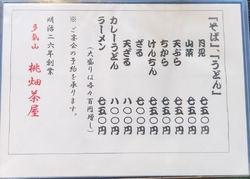 『そば』、『うどん』
月見 七五〇円
山菜 七五〇円
天ぷら 七五〇円
ちから 七五〇円
けんちん 七五〇円
ざる 七五〇円
天ざる 八〇〇円
カレーうどん 八〇〇円
ラーメン 七五〇円
(大盛りは各々百円増し)
※ご宴会の予約を承ります。
明治二六年創業
多気山 桃畑茶屋